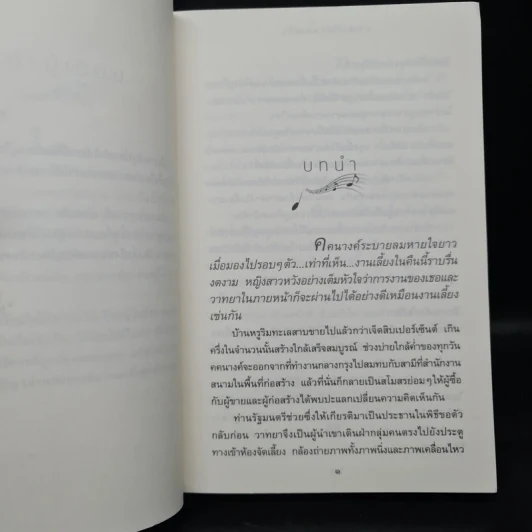 บทนำ
คคนางค์ระบายลมหายใจยาว
เมื่อมองไปรอบๆ ตัว...เท่าที่เห็น...งานเลี้ยงในคืนนี้ราบรื่น
งดงาม หญิงสาวหวังอย่างเต็มหัวใจว่าการงานของเธอและ
วาทยาในภายหน้าก็จะผ่านไปได้อย่างดีเหมือนงานเลี้ยง
เช่นกัน
บ้านหรูริมทะเลสาบขายไปแล้วกว่าเจ็ดสิบเปอร์เซ็นต์ เกิน
ครึ่งในจำนวนนั้นสร้างใกล้เสร็จสมบูรณ์ ช่วงบ่ายใกล้ค่ำของทุกวัน
คคนางค์จะออกจากที่ทำงานกลางกรุงไปสมทบกับสามีที่สำนักงาน
สนามในพื้นที่ก่อสร้าง แล้วที่นั่นก็กลายเป็นสโมสรย่อมๆ ให้ผู้ซื้อ
กับผู้ขายและผู้ก่อสร้างได้พบปะแลกเปลี่ยนความคิดเห็นกัน
ท่านรัฐมนตรีช่วยซึ่งให้เกียรติมาเป็นประธานในพิธีขอตัว
กลับก่อน วาทยาจึงเป็นผู้นำเขาเดินฝ่ากลุ่มคนตรงไปยังประตู
ทางเข้าห้องจัดเลี้ยง กล้องถ่ายภาพทั้งภาพนิ่งและภาพเคลื่อนไหว